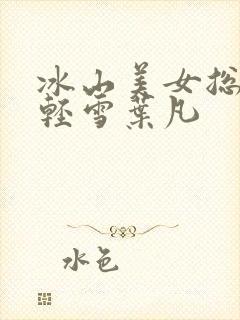 冰山美女总
轻雪葉凡
水色